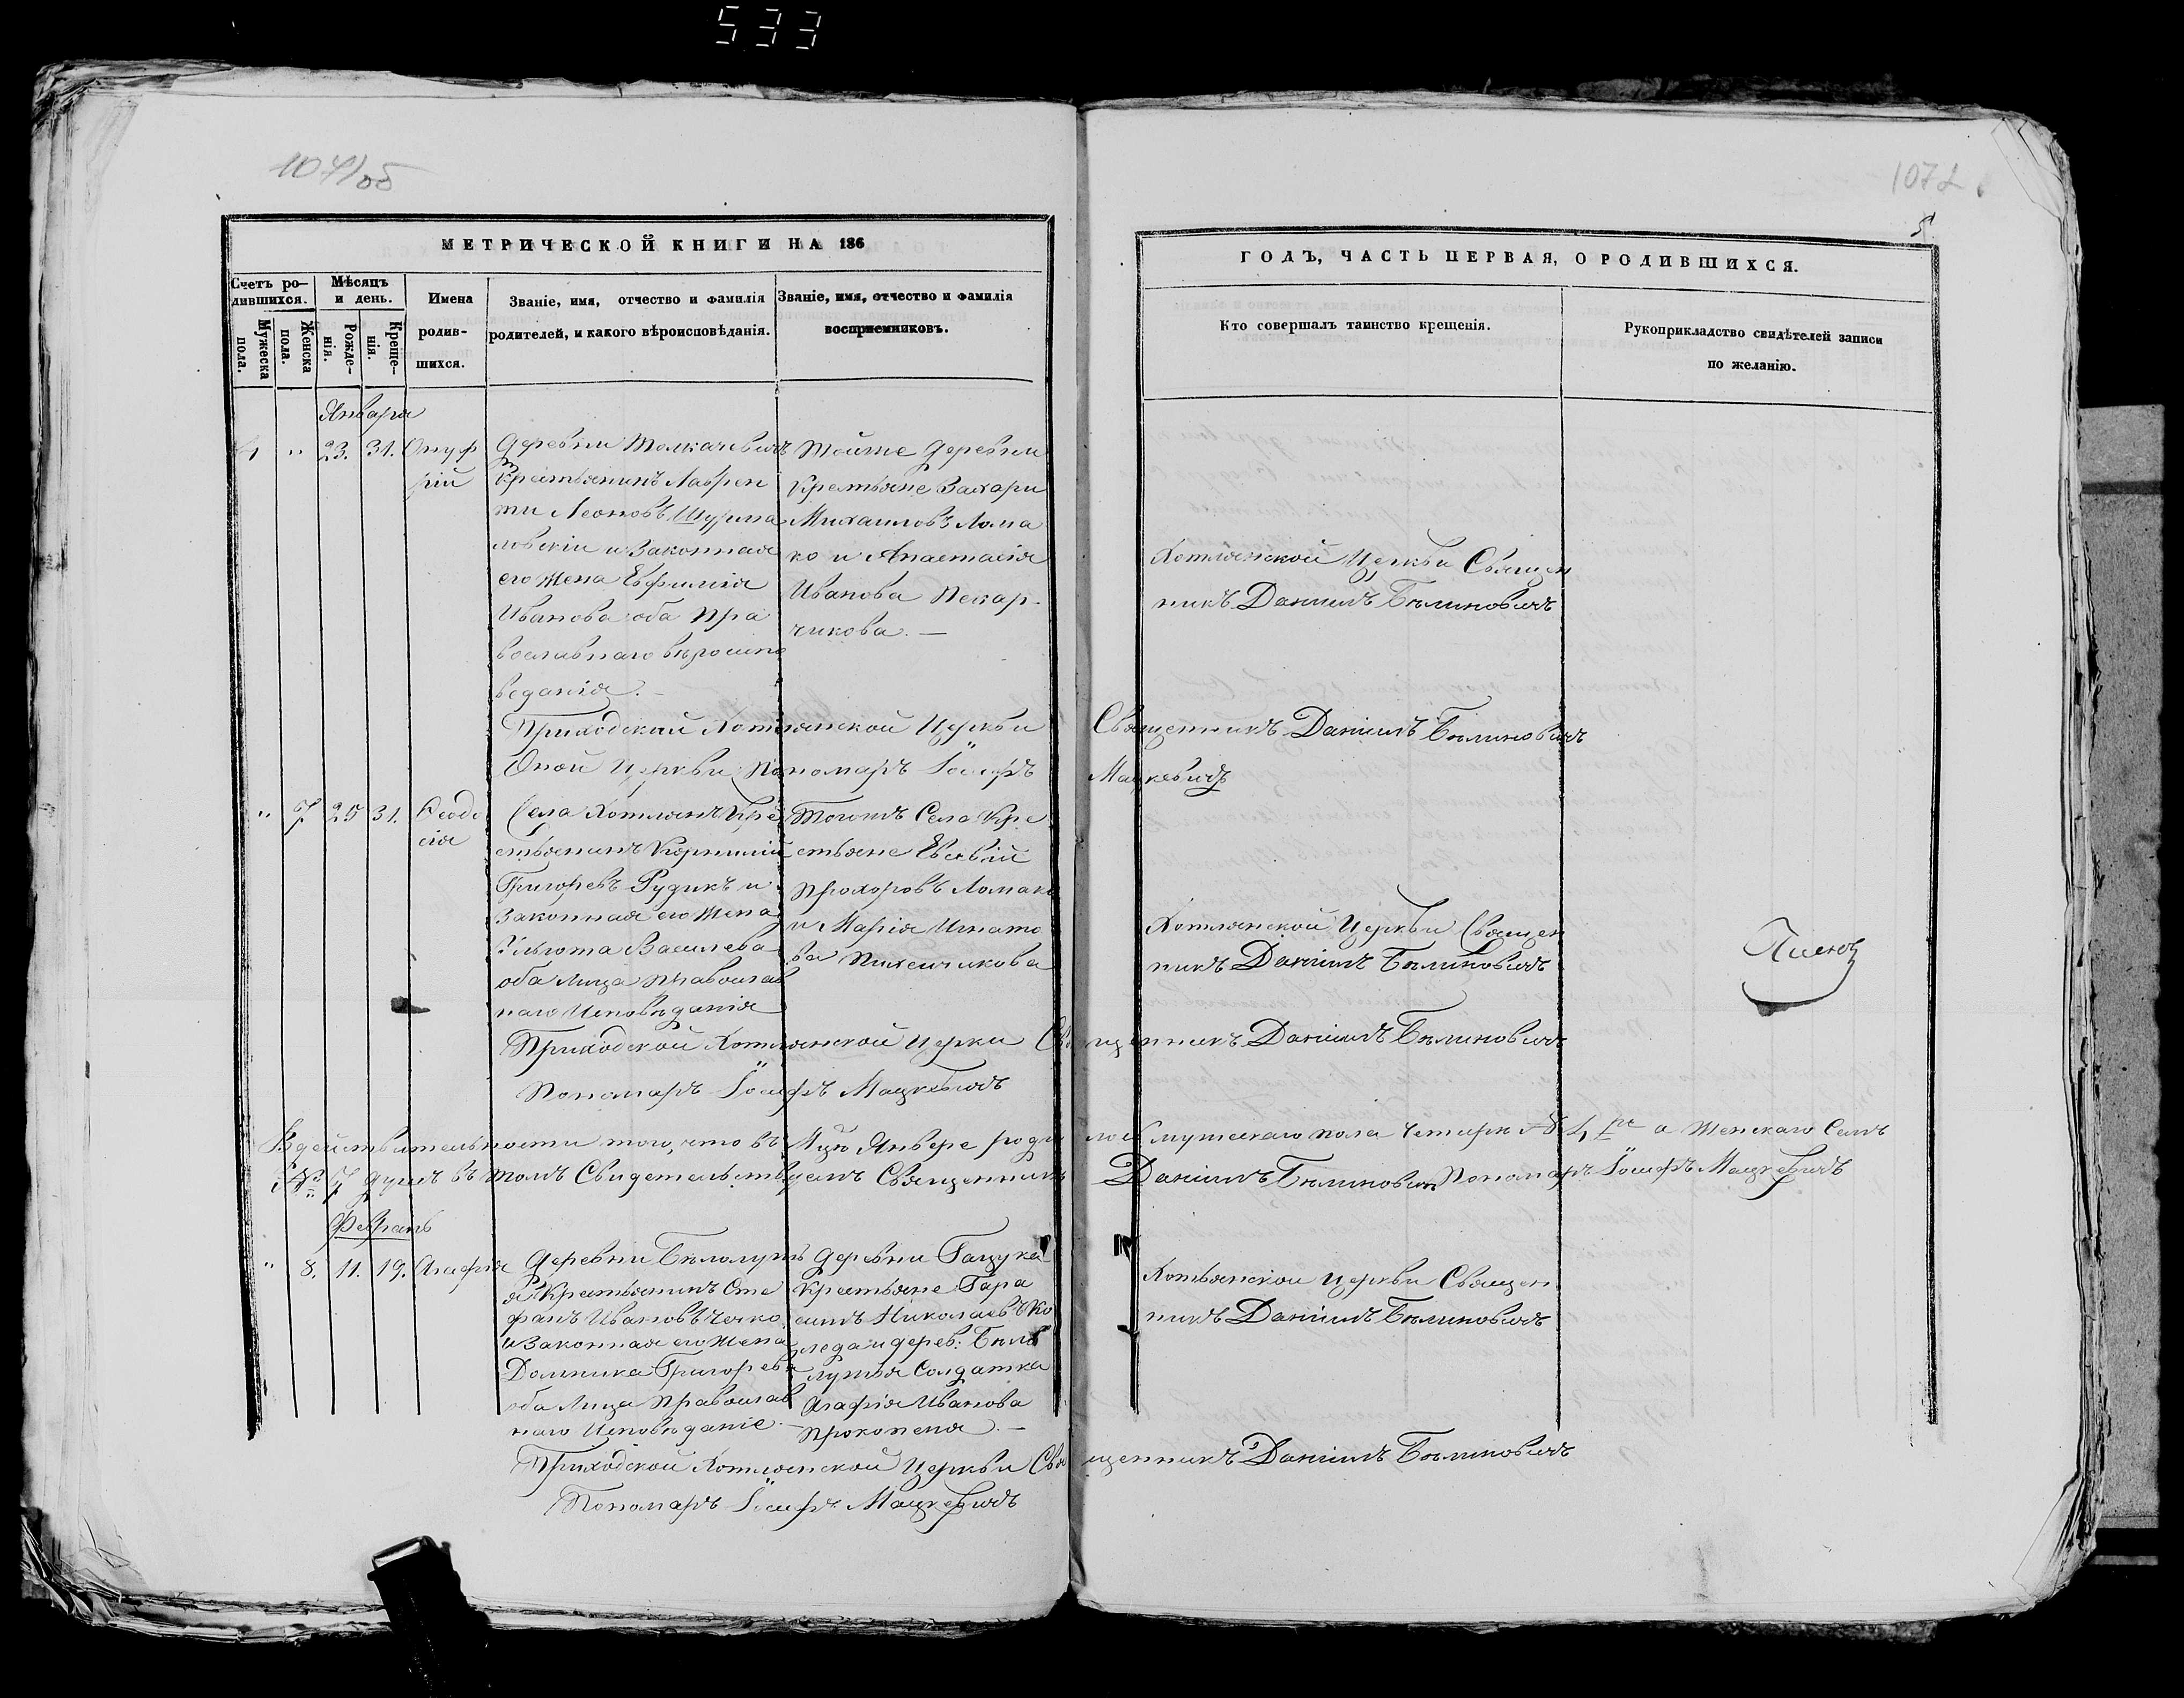 533
1071/об
1072
5
МЕТРИЧЕСКОЙ КНИГИ НА 186
ГОДЪ, ЧАСТЬ ПЕРВАЯ, О РОДИВШИХСЯ.
Счетъ ро-
дившихся.
Мужеска
пола.
Женска
пола.
Мѣсяцъ
и день.
Рожде-
нія.
Креще-
нія.
Имена
родив-
шихся.
Званіе, имя, отчество и фамилія
родителей, и какого вѣроисповѣданія.
Званіе, имя, отчество и фамилія
воспріемниковъ.
Кто совершалъ таинство крещенія.
Рукоприкладство свидѣтелей записи
по желанію.
Января
4 " 23. 31. Онуф
рій
Деревни Толкачевичъ
Крестьянинъ Лаврен
ти Леоновъ Шурма
ловскій и Законная
его Жена Евфимія
Иванова оба Пра
вославнаго вѣроиспо
веданія. –
Тойже Деревни
Крестьяне Захари
Михаиловъ Лома
ко и Анастасія
Иванова Пекар-
чикова. –
Хотлянской Церкви Священ
никъ Даніилъ Бѣлиновичъ
Приходскій Хотлянской Церкви Священникъ Даніилъ Бѣлиновичъ
Оной Церкви Пономаръ Іосифъ Мацкевичъ
" 7 25 31. Феодо
сія
Села Хотлянъ Кре
стьянинъ Корнилій
Григоревъ Рудикъ и
Законная его Жена
Василева
оба Лица Православ
наго Исповѣданія
Тогожъ Села Кре
стьяне Евсевій
Прохоровъ Ломако
и Марія Игнато
ва Пихенчикова
Хотлянской Церкви Священ
никъ Даніилъ Бѣлиновичъ
Приходской Хотлянской Церки Священникъ Даніилъ Бѣлиновичъ
Пономаръ Іосифъ Мацкевичъ
Вдействительности того, что въ Мцѣ Январе родилось мужескаго пола четыри № 4 ре а Женскаго Семъ
№ 7 душъ въ томъ Свидетельствуемъ Священникъ Даніилъ Бѣлиновичъ Пономаръ Іосифъ Мацкевичъ
Февраль
" 8. 11. 19. Агафія
Деревни Бѣлолуж
я Крестьянинъ Сте
фанъ Ивановъ
и Законная его Жена
Домника Григорева
оба Лица Православ
наго Исповѣданіе. –
Деревни Гацука
Крестьяне Гара
симъ Николаевъ Ко
леда и дерев: Бѣло
лужья Солдатка
Агафія Иванова
Прокопеня. –
Хотлянской Церкви Священ
никъ Даніилъ Бѣлиновичъ
Приходской Хотлянской Церкви Священникъ Даніилъ Бѣлиновичъ
Пономаръ Іосифъ Мацкевичъ